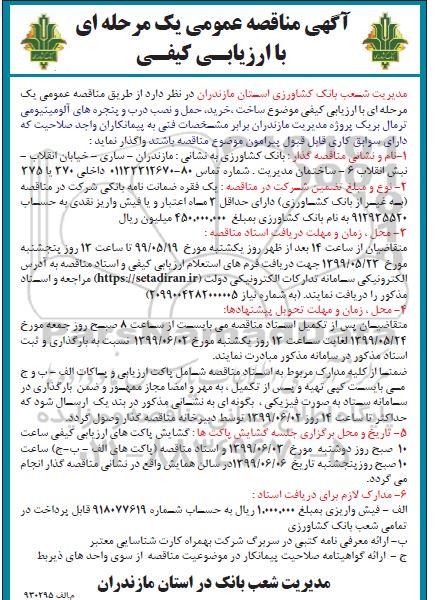 آگهی مناقصه عمومی یک مرحله ای
با ارزیابی کیفی
مدیریت شعب بانک کشاورزی استان مازندران در نظر دارد از طریق مناقصه عمومی یک
مرحله ای با ارزیابی کیفی موضوع ساخت ،خرید، حمل و نصب درب و پنجره های آلومینیومی
ترمال بریک پروژه مدیریت مازندران برابر مشخصات فنی به پیمانکاران واجد صلاحیت که
دارای سوابق کاری قابل قبول پیرامون موضوع مناقصه باشند واگذار نماید :
۱-نام و نشانی مناقصه گذار : بانک کشاورزی به نشانی : مازندران - ساری - خیابان انقلاب -
نبش انقلاب ۶ - ساختمان مدیریت . شماره تماس : ۸۰-۰۱۱۳۳۳۱۴۶۷۰ داخلی ۲۷۰ یا ۲۷۵
۲- نوع و مبلغ تضمین شرکت در مناقصه : یک فقره ضمانت نامه بانکی شرکت در مناقصه
(به غیر از بانک کشاورزی) دارای حداقل ۳ ماه اعتبار و یا فیش واریز نقدی به حساب
۹۱۲۹۳۵۵۲۰ به نام بانک کشاورزی بمبلغ ۴۵۰٫۰۰۰٫۰۰۰ میلیون ریال
۳- محل ، زمان و مهلت دریافت اسناد مناقصه :
متقاضیان از ساعت ۱۴ بعد از ظهر روز یکشنبه مورخ ۹۹/۰۵/۱۹ تا ساعت ۱۳ روز پنجشنبه
مورخ ۱۳۹۹/۰۵/۲۳ جهت دریافت فرم های استعلام ارزیابی کیفی و اسناد مناقصه به آدرس
الکترونیکی سامانه تدارکات الکترونیکی دولت (https://setadiran.ir) مراجعه و اسناد
مذکور را دریافت نمایند. (به شماره نیاز ۲۰۹۹۰۰۴۲۸۲۰۰۰۰۰۵)
۴- محل ، زمان و مهلت تحویل پیشنهادها:
متقاضیان پس از تکمیل اسناد مناقصه می بایست از ساعت ۸ صبح روز جمعه مورخ
۱۳۹۹/۰۵/۲۴ لغایت ساعت ۱۳ روز یکشنبه مورخ ۱۳۹۹/۰۶/۰۲ نسبت به بارگذاری و ثبت
اسناد مذکور در سامانه مذکور مبادرت نمایند.
ضمنا از کلیه مدارک مربوط به اسناد مناقصه شامل پاکت ارزیابی و پاکات الف - ب و ج
می بایست کپی تهیه و پس از تکمیل ، به مهر و امضا مجاز ممهور و ضمن بارگذاری در
سامانه ستاد به صورت فیزیکی ، بگونه ای به نشانی مذکور در بند یک ارسال شود که
حداکثر تا ساعت ۱۴ روز ۱۳۹۹/۰۶/۰۲ توسط دبیرخانه مناقصه گذار وصول گردد.
۵- تاریخ و محل برگزاری جلسه گشایش پاکت ها : گشایش پاکت های ارزیابی کیفی ساعت
۱۰ صبح روز دوشنبه مورخ ۱۳۹۹/۰۶/۰۳ و اسناد مناقصه (پاکت های الف -ب-ج) ساعت
۱۰ صبح روز پنجشنبه تاریخ ۱۳۹۹/۰۶/۰۶در سالن همایش واقع در نشانی مناقصه گذار انجام
می گردد.
۶- مدارک لازم برای دریافت اسناد :
الف - فیش واریزی بمبلغ ۱٫۰۰۰٫۰۰۰ ریال به حساب شماره ۹۱۸۰۷۷۶۱۹ قابل پرداخت در
تمامی شعب بانک کشاورزی
ب- ارائه معرفی نامه کتبی در سربرگ شرکت بهمراه کارت شناسایی معتبر
ج - ارائه گواهینامه صلاحیت پیمانکار در موضوعیت مناقصه از سوی واحد های ذیربط
مدیریت شعب بانک در استان مازندران
م.الف ۹۳۰۲۹۵